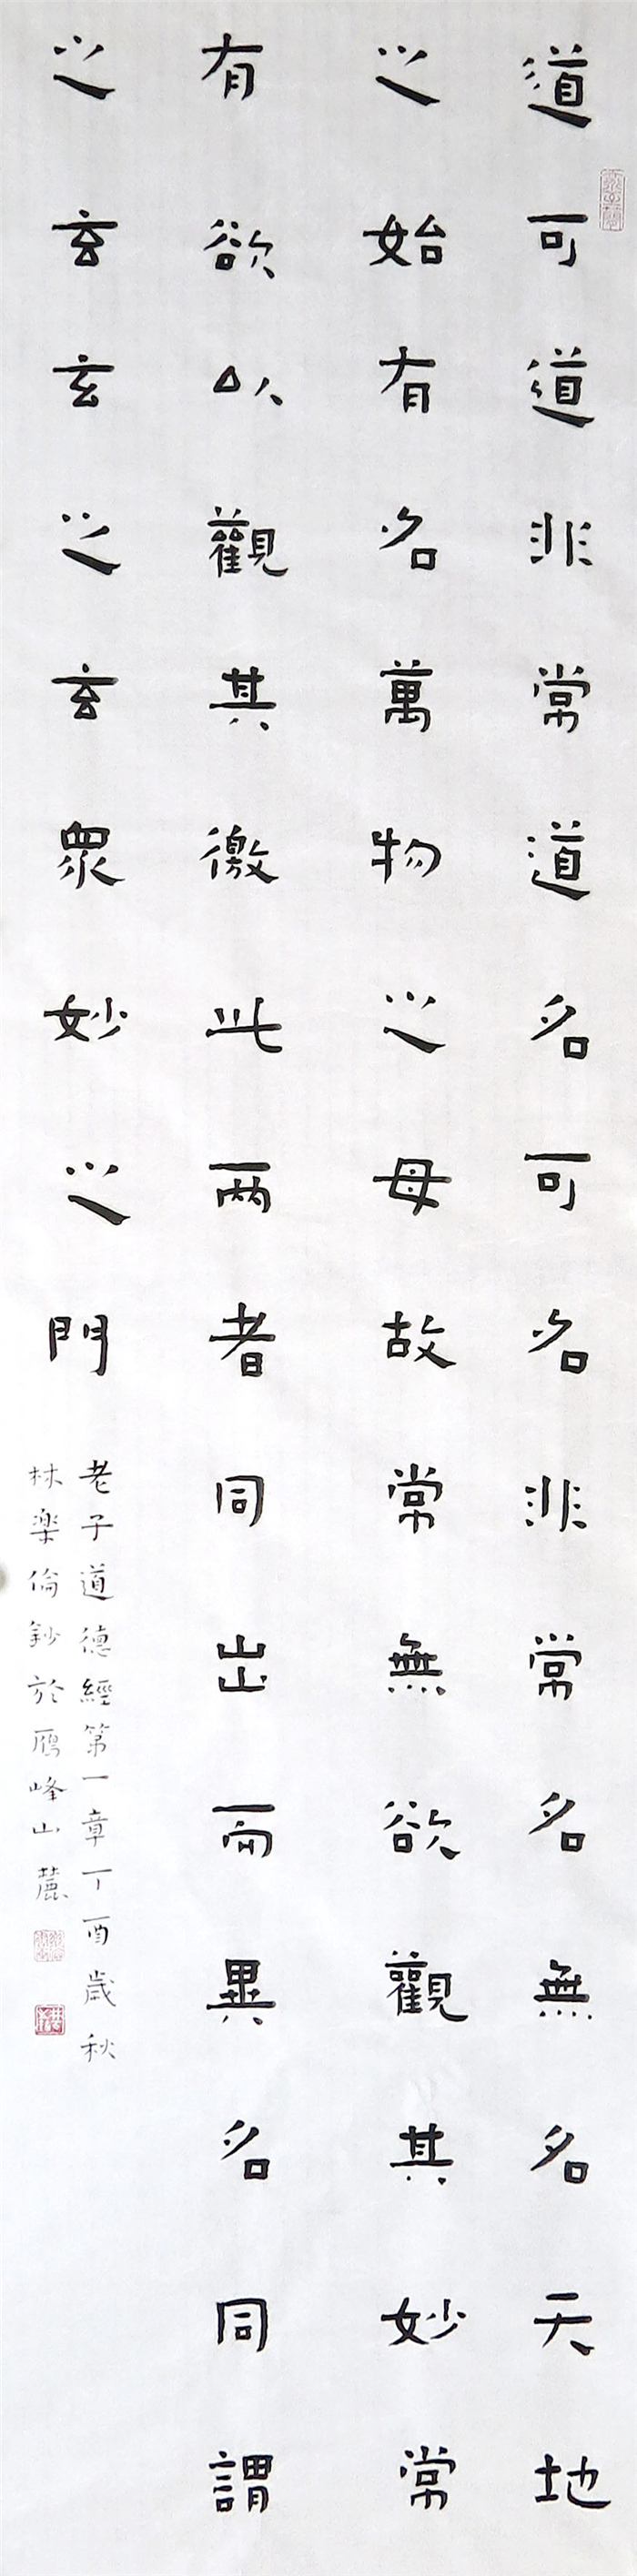 道可道非常道名可名非常名無名天地
之始有名萬物之母故常無欲觀其妙常
有欲以觀其徼此兩者同出而異名同謂
之玄玄之玄眾妙之門
老子道德經第一章丁酉歲秋
林樂倫鈔於雁峰山麓